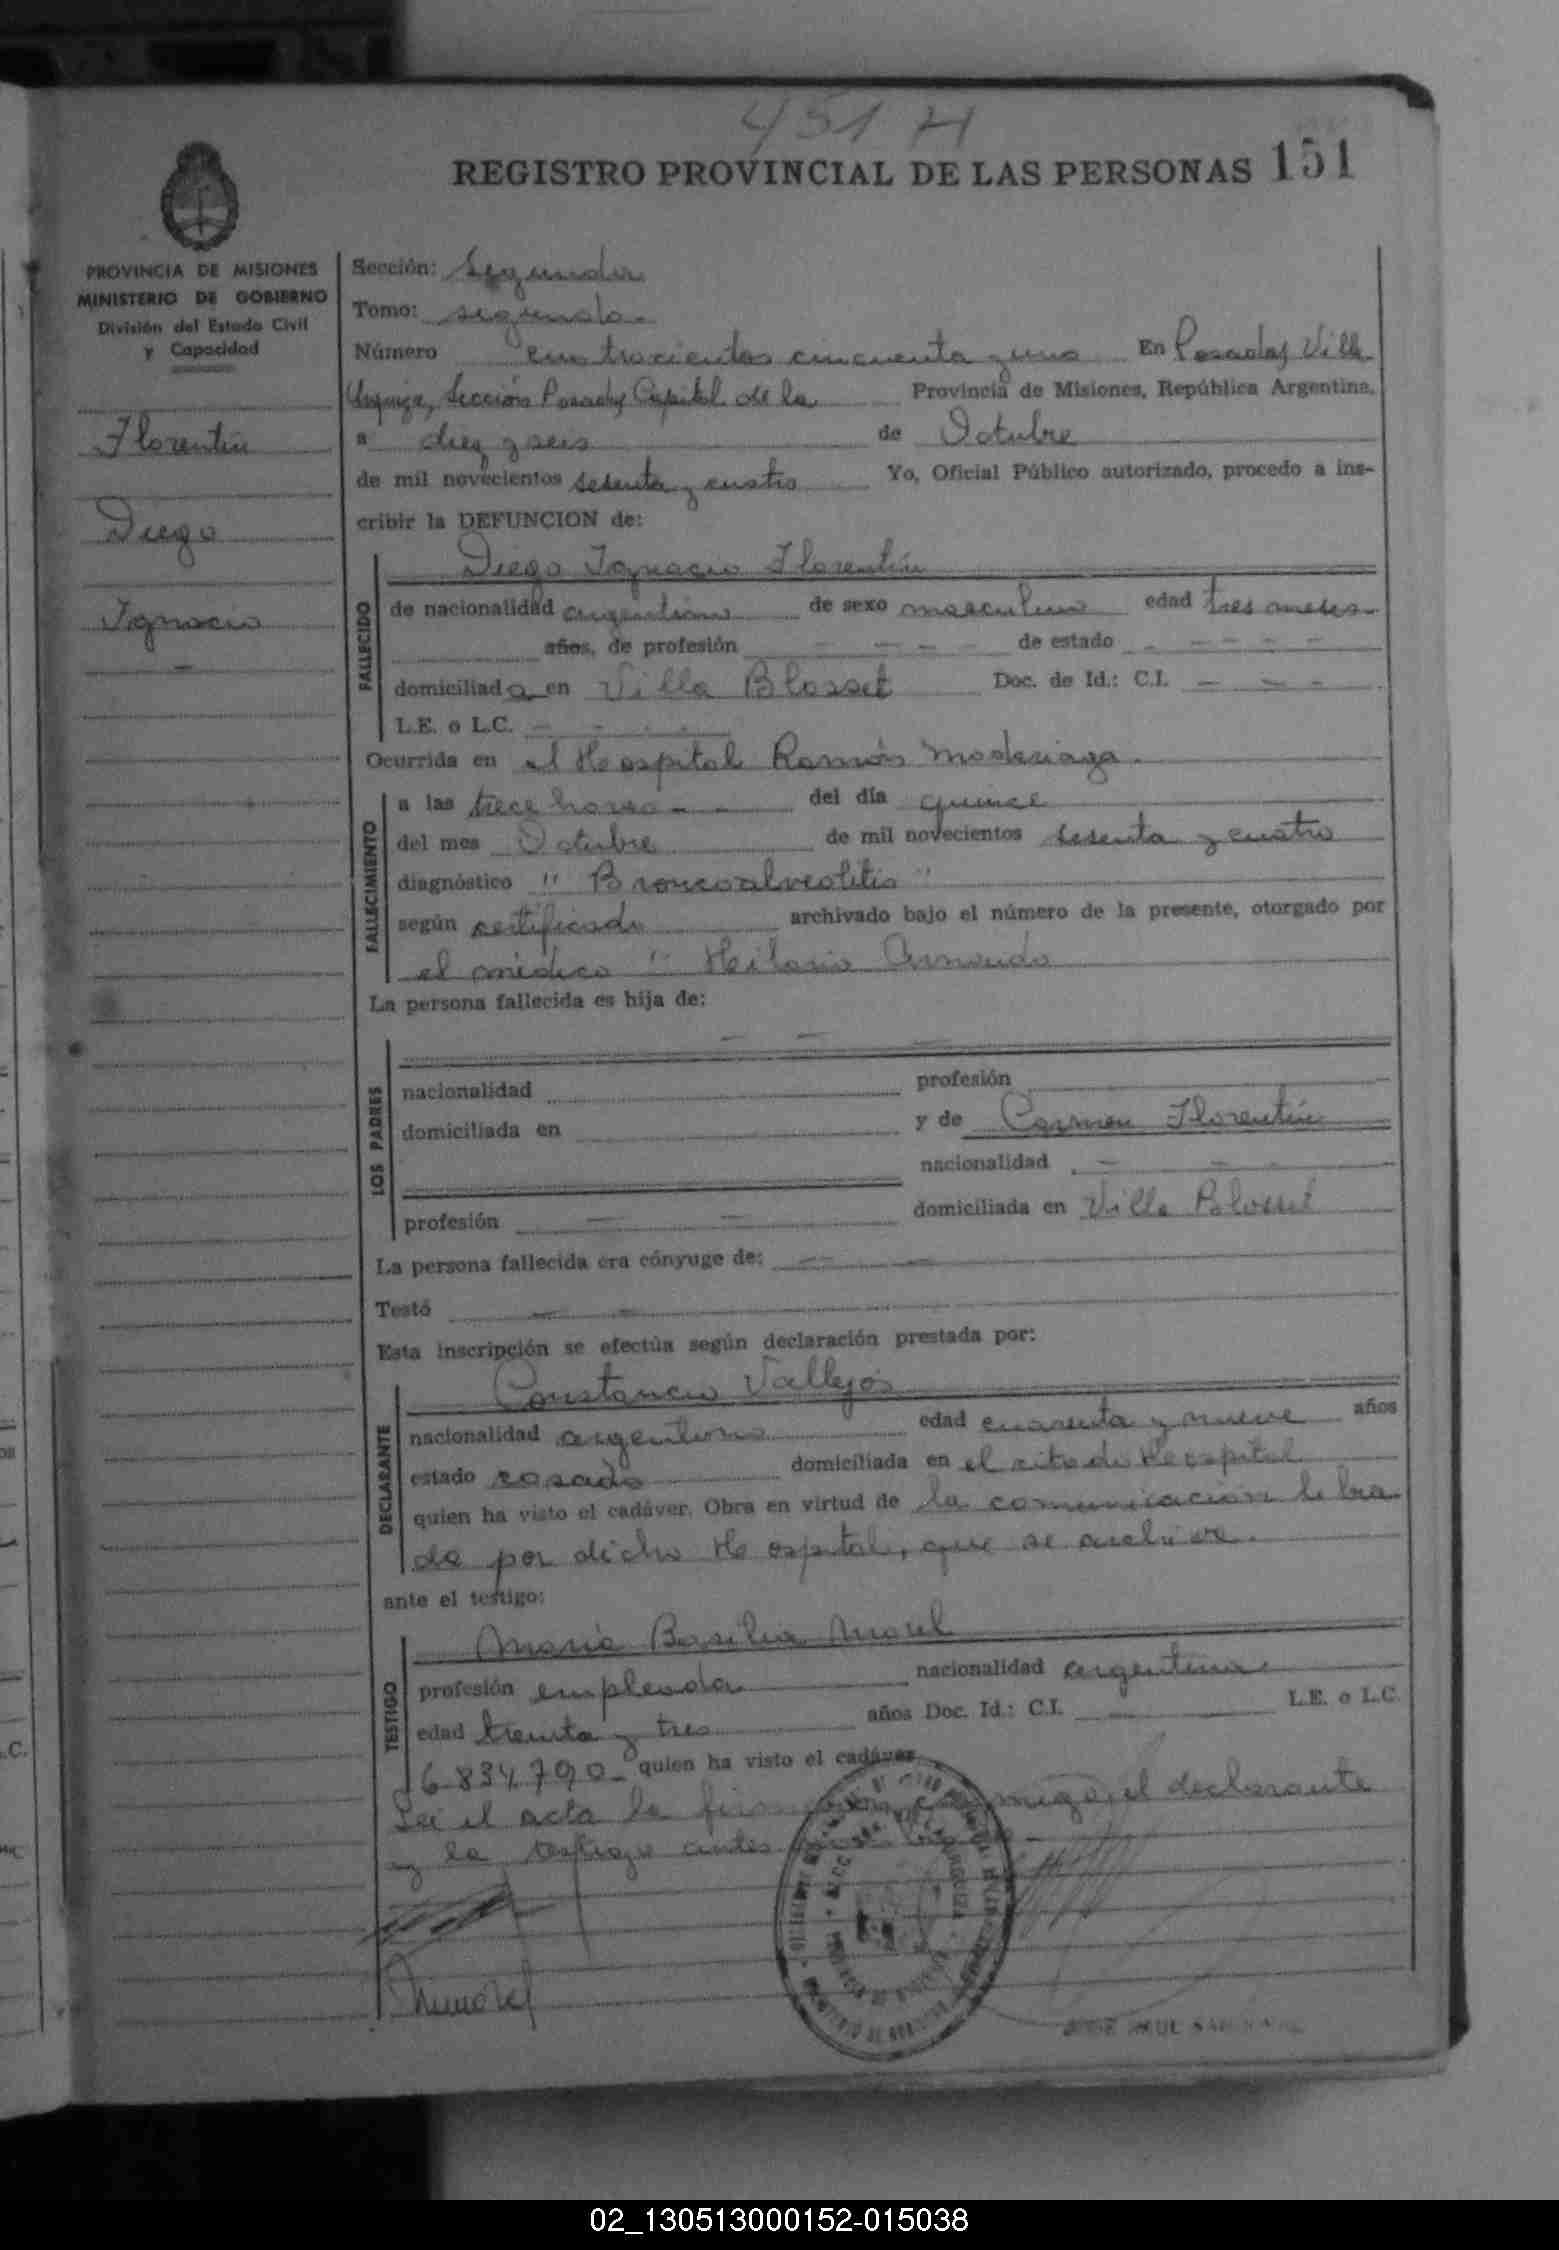 451 H
REGISTRO PROVINCIAL DE LAS PERSONAS 151
PROVINCIA DE MISIONES
MINISTERIO DE GOBIERNO
División del Estado Civil
y Capacidad
Florentín
Diego
Ignacio
Sección: Segunda
Tomo: segundo.
Número cuatrocientos cincuenta y uno En Posadas, Villa
Urquiza, Sección Posadas Capital de la Provincia de Misiones, República Argentina,
a diez y seis de Octubre
de mil novecientos sesenta y cuatro Yo, Oficial Público autorizado, procedo a ins-
cribir la DEFUNCION de:
FALLECIDO
Diego Ignacio Florentín
de nacionalidad argentino de sexo masculino edad tres meses
años, de profesión - - - - de estado - - - - -
domiciliada en Villa Blosset Doc. de Id.: C.I. - - -
L.E. o L.C. - - - -
Ocurrida en el Hospital Ramón Maderiaga.
FALLECIMIENTO
a las trece horas - - del día quince
del mes Octubre de mil novecientos sesenta y cuatro
diagnóstico " Broncoalveolitis "
según certificado archivado bajo el número de la presente, otorgado por
el médico " Hilario Armando
La persona fallecida es hija de:
LOS PADRES
nacionalidad profesión
domiciliada en y de Carmen Florentín
nacionalidad - - -
profesión - - domiciliada en Villa Blosset
La persona fallecida era cónyuge de: - -
Testó - -
Esta inscripción se efectúa según declaración prestada por:
DECLARANTE
Constancio Vallejos
nacionalidad argentino edad cuarenta y nueve años
estado casado domiciliada en el citado Hospital
quien ha visto el cadáver. Obra en virtud de la comunicación libra
da por dicho Hospital, que se archiva.
ante el testigo:
TESTIGO
María Basilia Morel
profesión empleada nacionalidad argentina.
edad treinta y tres años Doc. Id.: C.I. L.E. o L.C.
6.834.790- quien ha visto el cadáver
Leí el acta la firman conmigo, el declarante
y la testigo antes
02_130513000152-015038